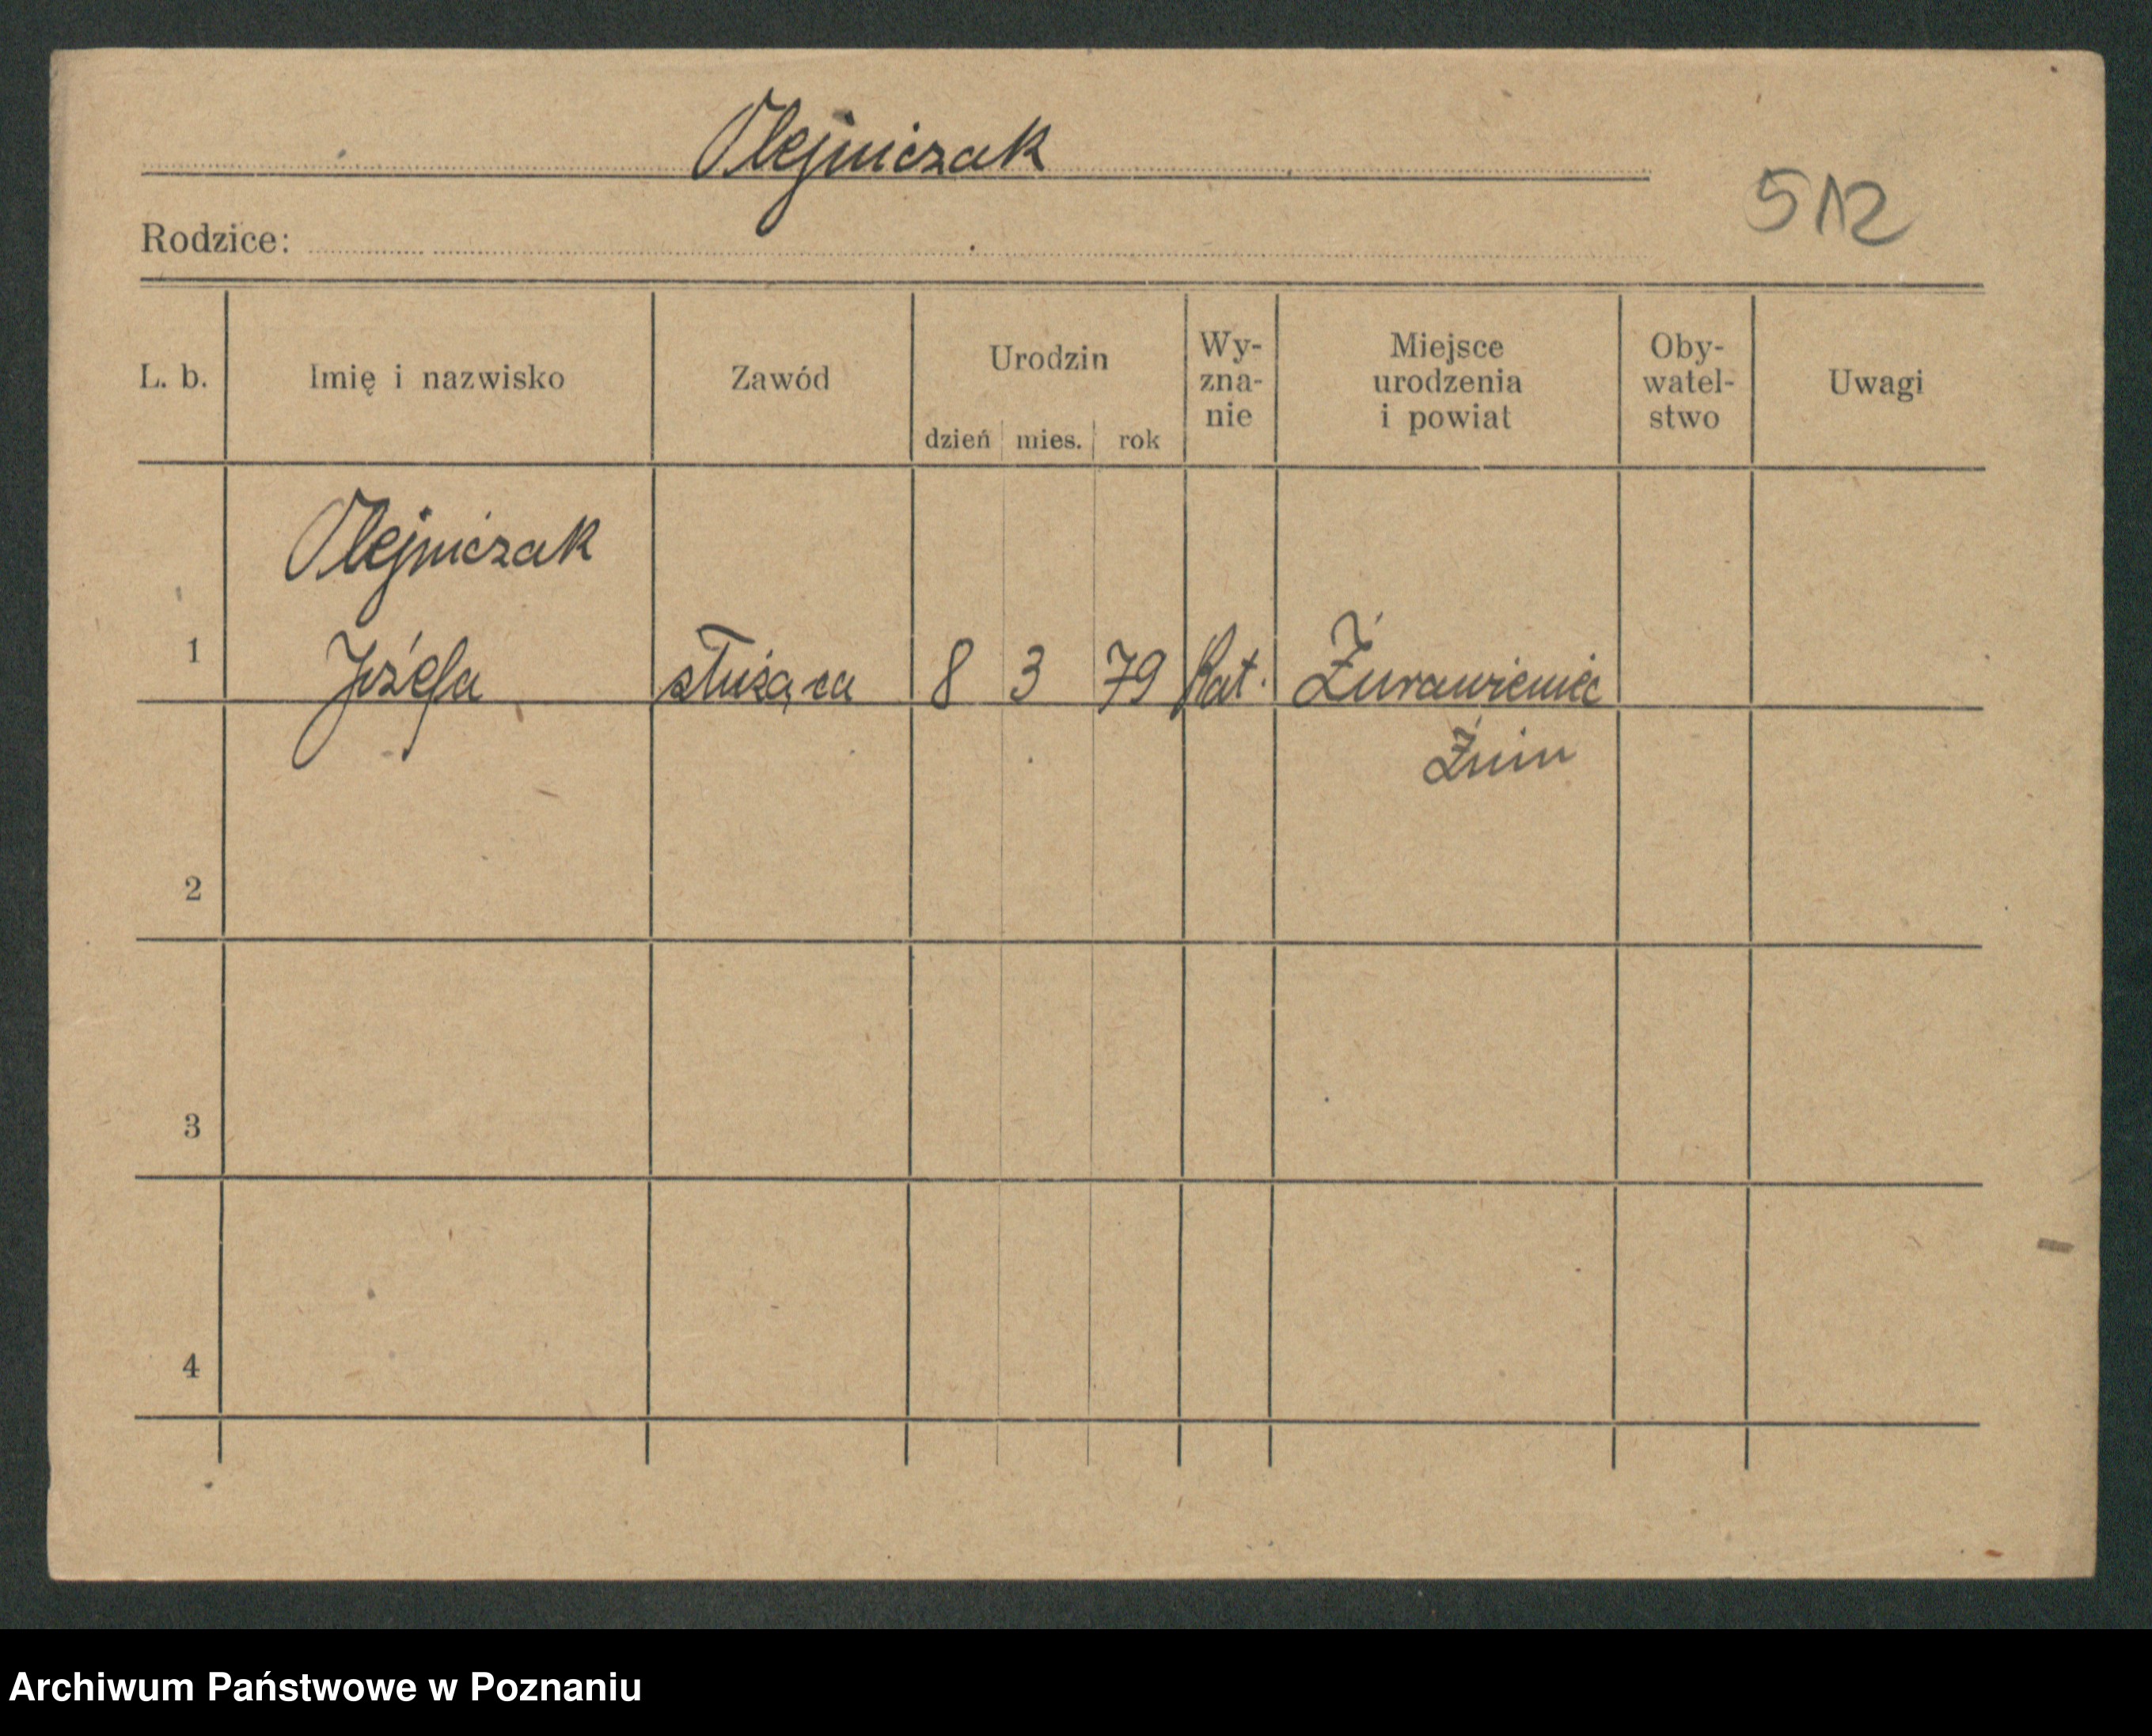 Olejniczak
512
Rodzice:
L. b. Imię i nazwisko Zawód Urodzin dzień mies. rok Wy-zna-nie Miejsce urodzenia i powiat Oby-watel-stwo Uwagi
Olejniczak
1 Józefa służąca 8 3 79 Kat. Żurawieniec
Żnin
2
3
4
Archiwum Państwowe w Poznaniu